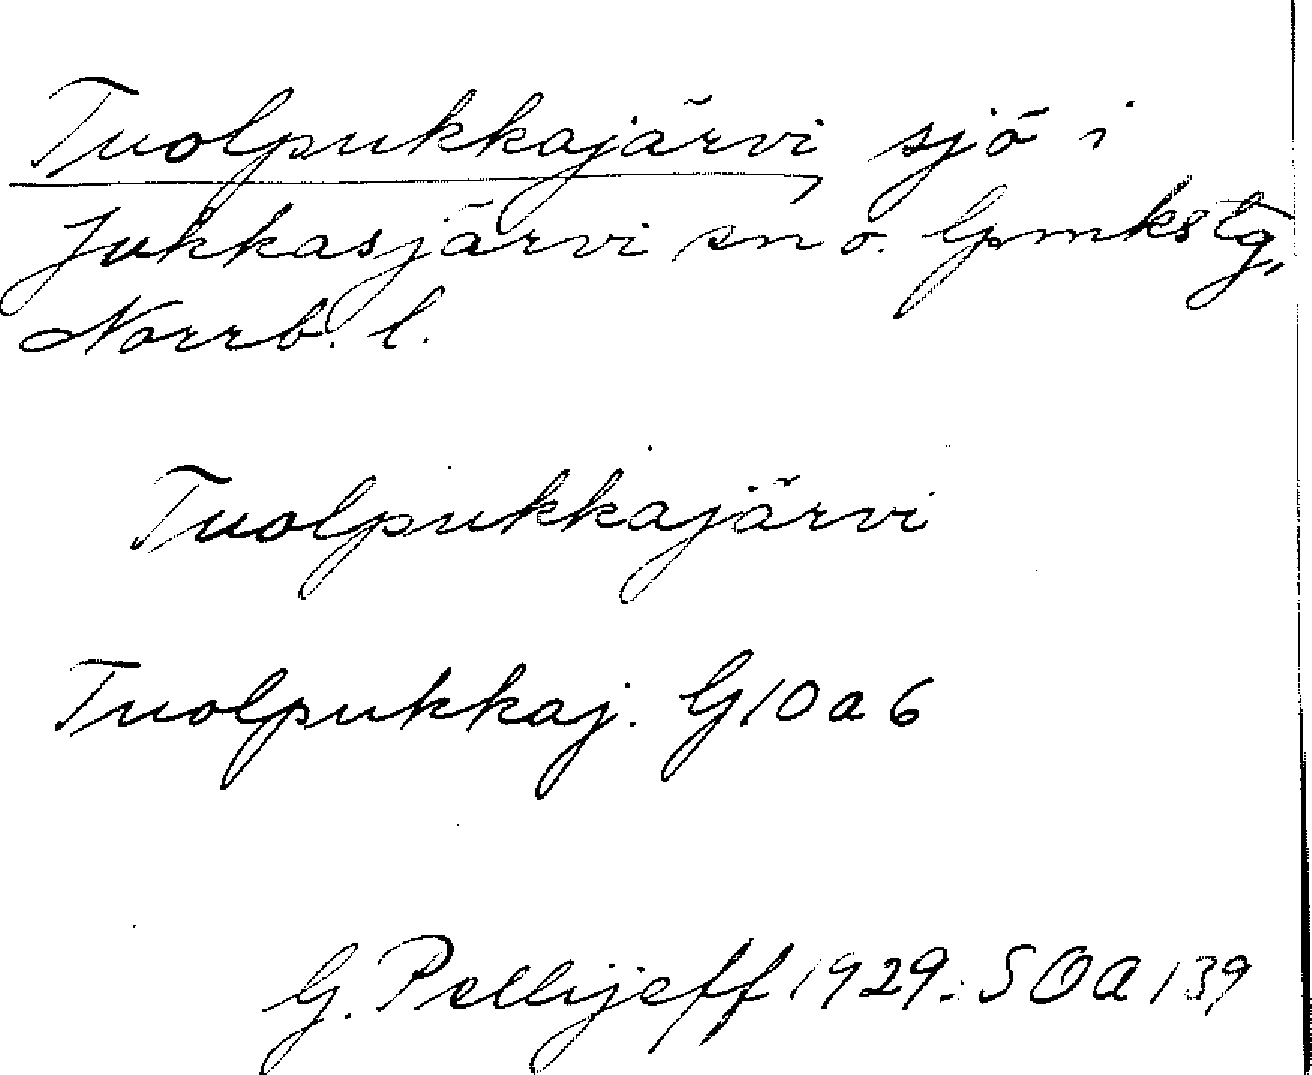 Tuolpukkajärvi, sjö i
Jukkasjärvi sn o. lpmkstg,
Norrb. l.
Tuolpukkajärvi
Tuolpukkaj. G10a6
G. Pellijeff 1929. SOA 139